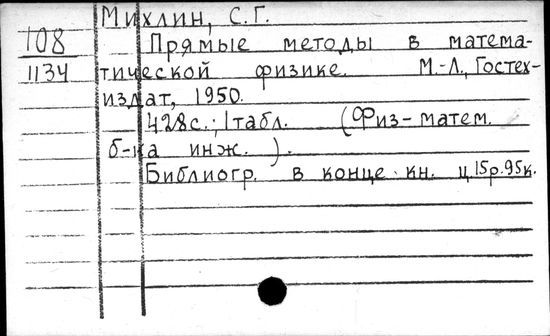 Михлин, С.Г.
108
Прямые методы в матема-
1134
тической физике. М.-Л., Гостех-
издат, 1950.
428с.; 1табл. (Физ-матем.
б-ка инж.).
Библиогр. в конце кн. ц 15р.95к.